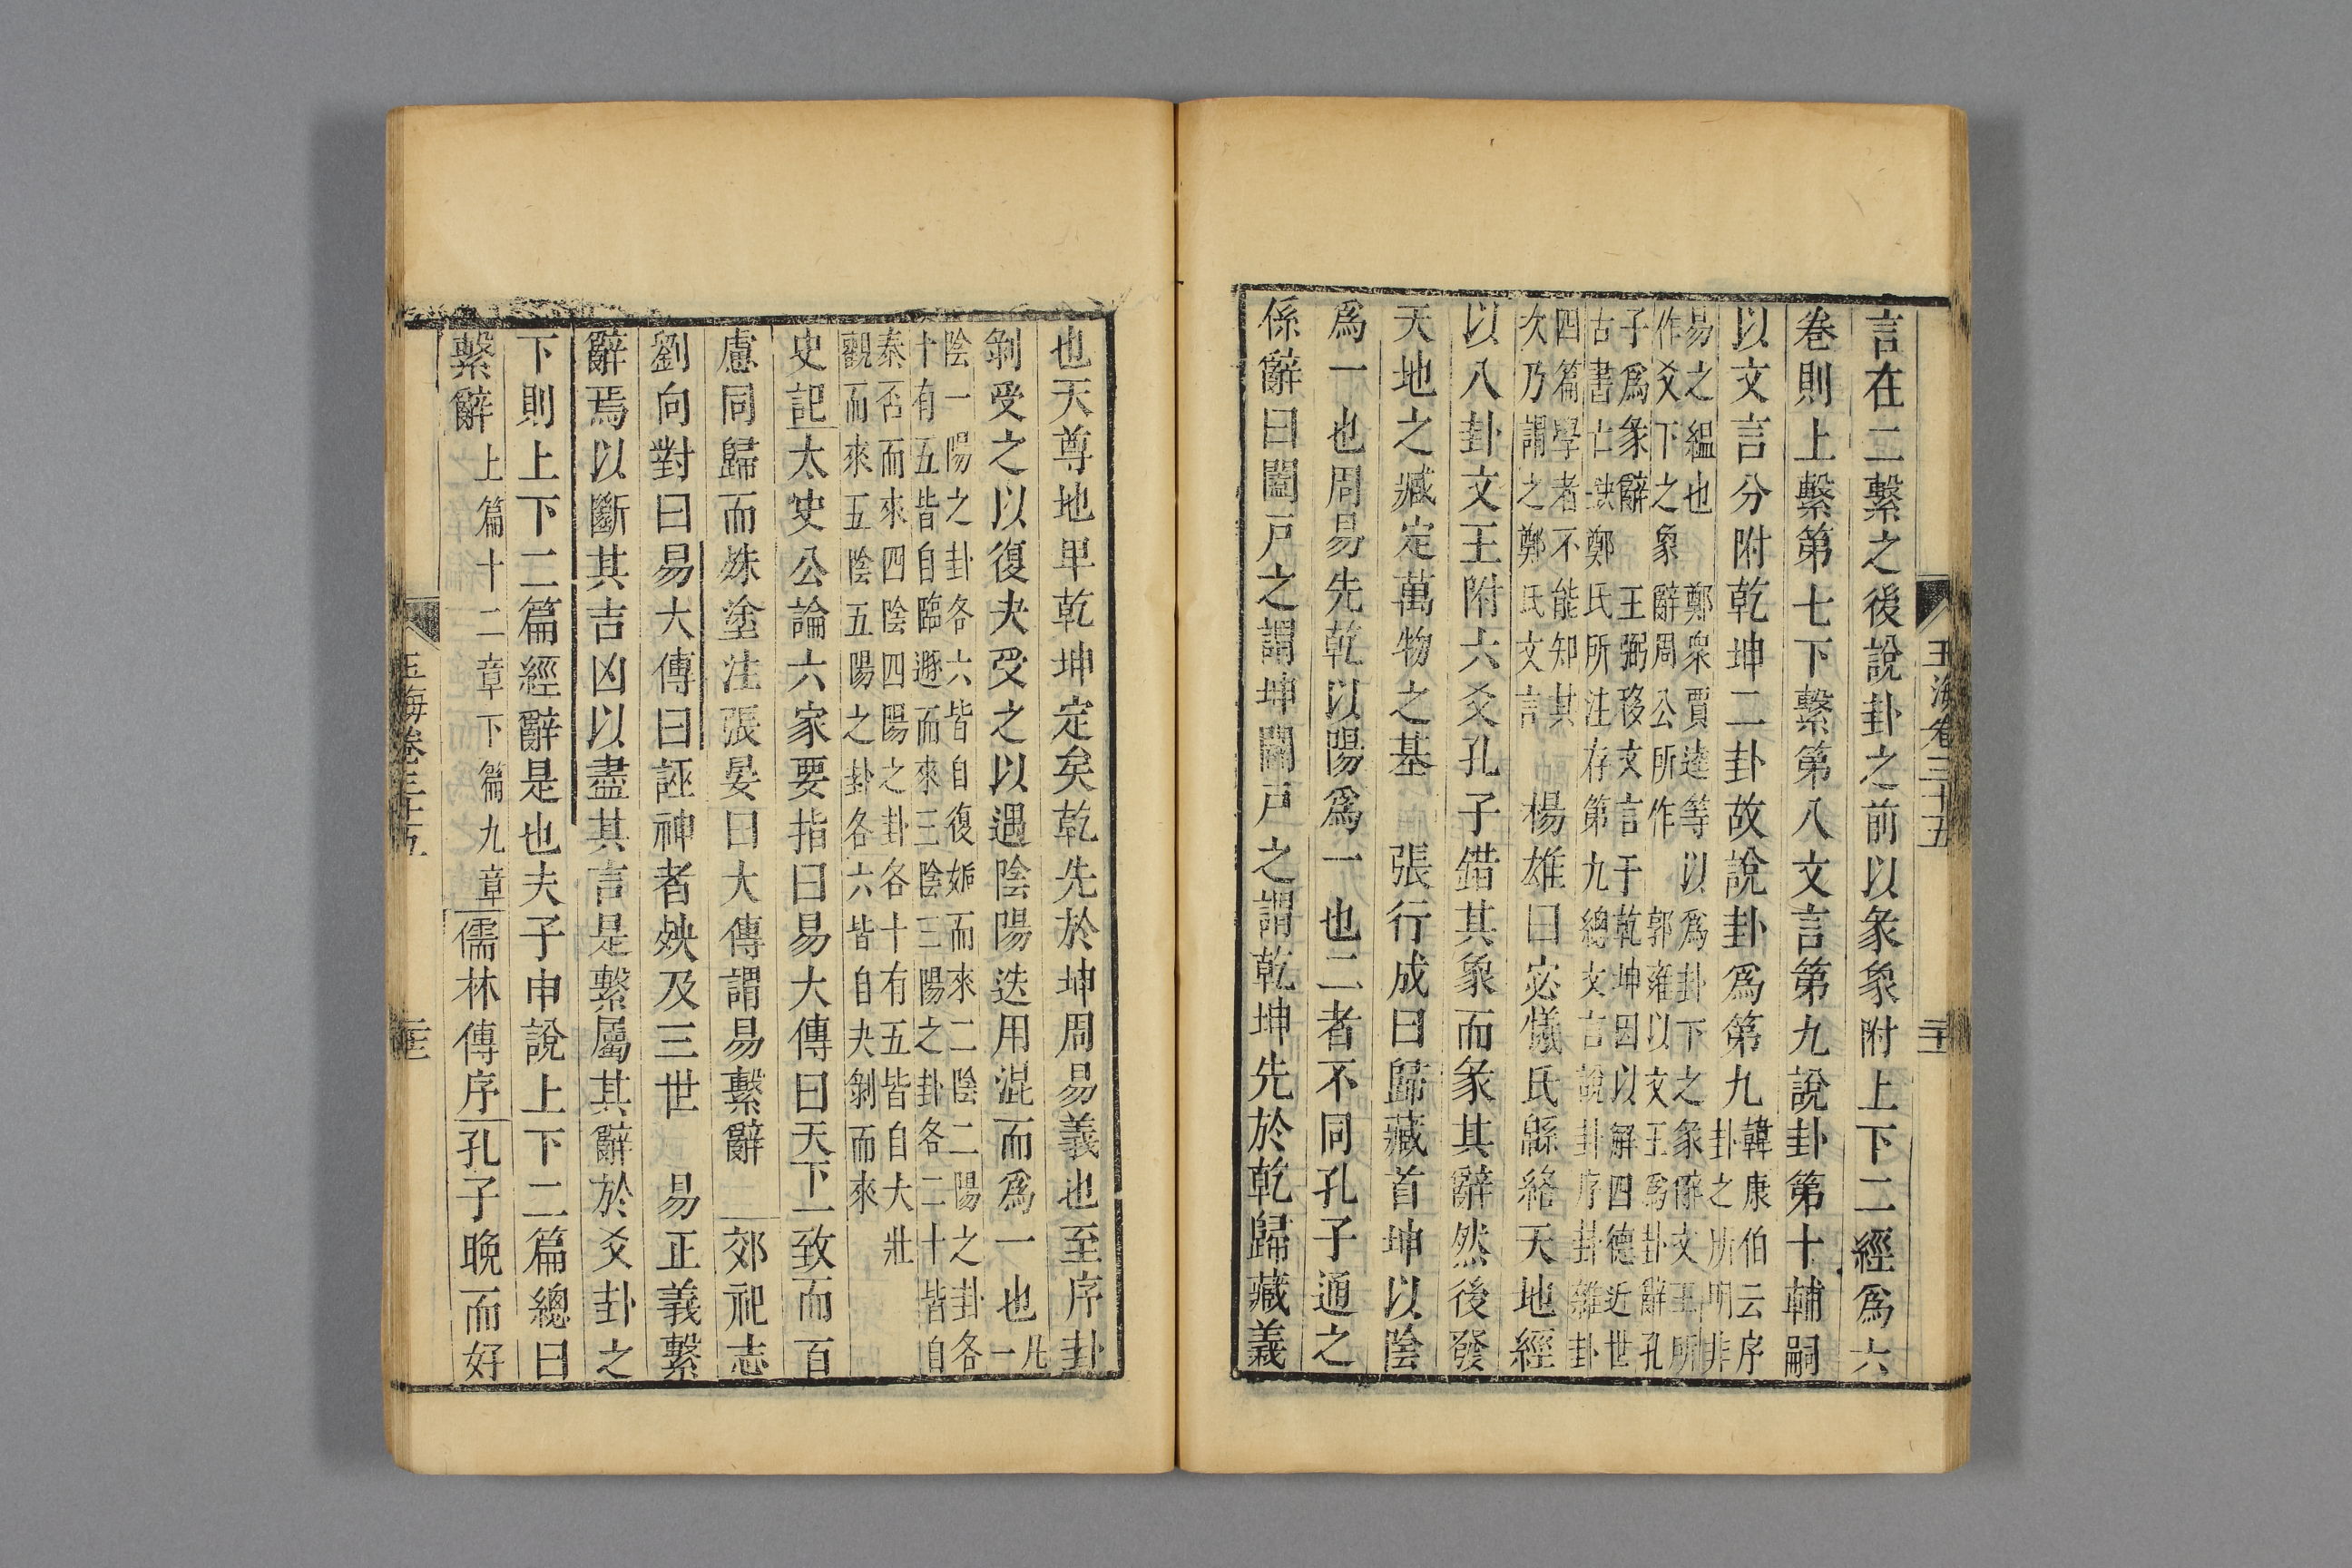 玉海卷三十五
言在二繫之後說卦之前以彖象附上下二經爲六
卷則上繫第七下繫第八文言第九說卦第十輔嗣
以文言分附乾坤二卦故說卦爲第九韓康伯云序
卦之所明非
易之緼也 鄭衆賈逵等以爲卦下之彖辭文王所
作爻下之象辭周公所作 郭雍以文王爲卦辭孔
子爲彖辭 王弼移文言于乾坤因以解四德近世
古書亡缺鄭氏所注存第九總文言說卦序卦雜卦
四篇學者不能知其
次乃謂之鄭氏文言 楊雄曰宓犧氏緜絡天地經
以八卦文王附六爻孔子錯其象而彖其辭然後發
天地之臧定萬物之基 張行成曰歸藏首坤以陰
爲一也周易先乾以陽爲一也二者不同孔子通之
係辭曰闔戶之謂坤闢戶之謂乾坤先於乾歸藏義
也天尊地卑乾坤定矣乾先於坤周易義也至序卦
剝受之以復夬受之以遇陰陽迭用混而爲一也凡一
陰一陽之卦各六皆自復姤而來二陰二陽之卦各
十有五皆自臨遯而來三陰三陽之卦各二十皆自
泰否而來四陰四陽之卦各十有五皆自大壯
觀而來五陰五陽之卦各六皆自夬剝而來
史記太史公論六家要指曰易大傳曰天下一致而百
慮同歸而殊塗注張晏曰大傳謂易繫辭 郊祀志
劉向對曰易大傳曰誣神者殃及三世 易正義繫
辭焉以斷其吉凶以盡其言是繫屬其辭於爻卦之
下則上下二篇經辭是也夫子申說上下二篇總曰
繫辭上篇十二章下篇九章儒林傳序孔子晚而好
玉海卷三十五